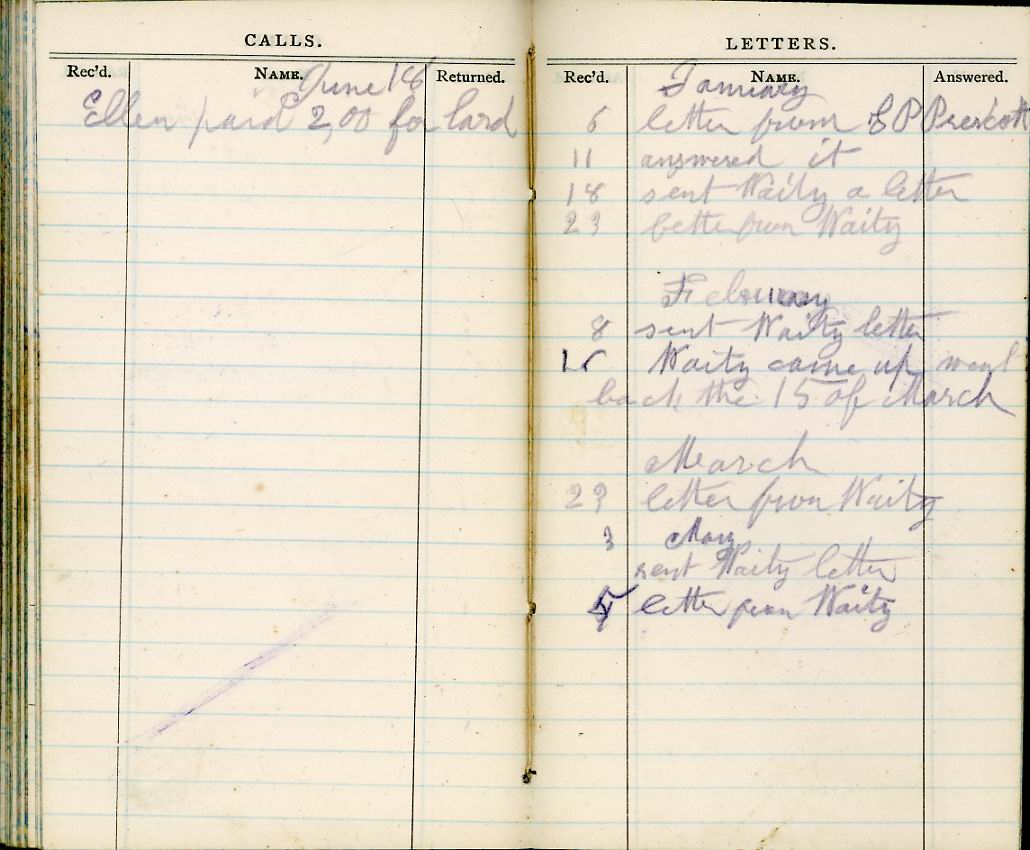 CALLS.
Rec'd. NAME. Returned.
June 18
Ellen paid 2,00 for lard
LETTERS.
Rec'd. NAME. Answered.
January
6 letter from E P Prescott
11 answered it
18 sent Waity a letter
23 letter from Waity
February
8 sent Waity letter
15 Waity came up went
back the 15 of March
March
23 letter from Waity
3 May
sent Waity letter
letter from Waity